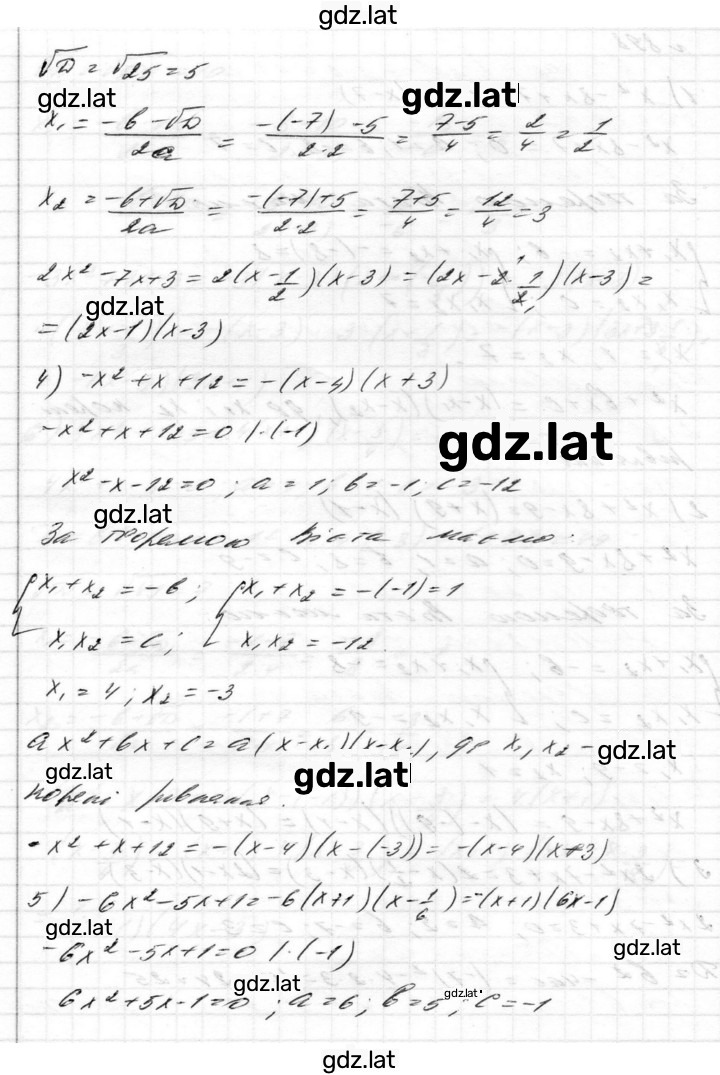 gdz.lat
√D = √25 = 5
gdz.lat
gdz.lat
x₁ = (-b - √D)/(2a) = (-(-7) - 5)/(2·2) = (7-5)/4 = 2/4 = 1/2
x₂ = (-b + √D)/(2a) = (-(-7) + 5)/(2·2) = (7+5)/4 = 12/4 = 3
2x² - 7x + 3 = 2(x - 1/2)(x - 3) = (2x - 2·1/2)(x - 3) =
gdz.lat
= (2x - 1)(x - 3)
4) -x² + x + 12 = -(x - 4)(x + 3)
-x² + x + 12 = 0 |·(-1)
gdz.lat
x² - x - 12 = 0; a = 1; b = -1; c = -12
gdz.lat
За теоремою Вієта маємо:
{x₁ + x₂ = -b; {x₁ + x₂ = -(-1) = 1
x₁x₂ = c; x₁x₂ = -12.
x₁ = 4; x₂ = -3
ax² + bx + c = a(x - x₁)(x - x₂), де x₁, x₂ -
gdz.lat
gdz.lat
gdz.lat
корені рівняння.
-x² + x + 12 = -(x - 4)(x - (-3)) = -(x - 4)(x + 3)
5) -6x² - 5x + 1 = -6(x + 1)(x - 1/6) = -(x + 1)(6x - 1)
gdz.lat
gdz.lat
-6x² - 5x + 1 = 0 |·(-1)
gdz.lat
gdz.lat
6x² + 5x - 1 = 0; a = 6; b = 5; c = -1
gdz.lat